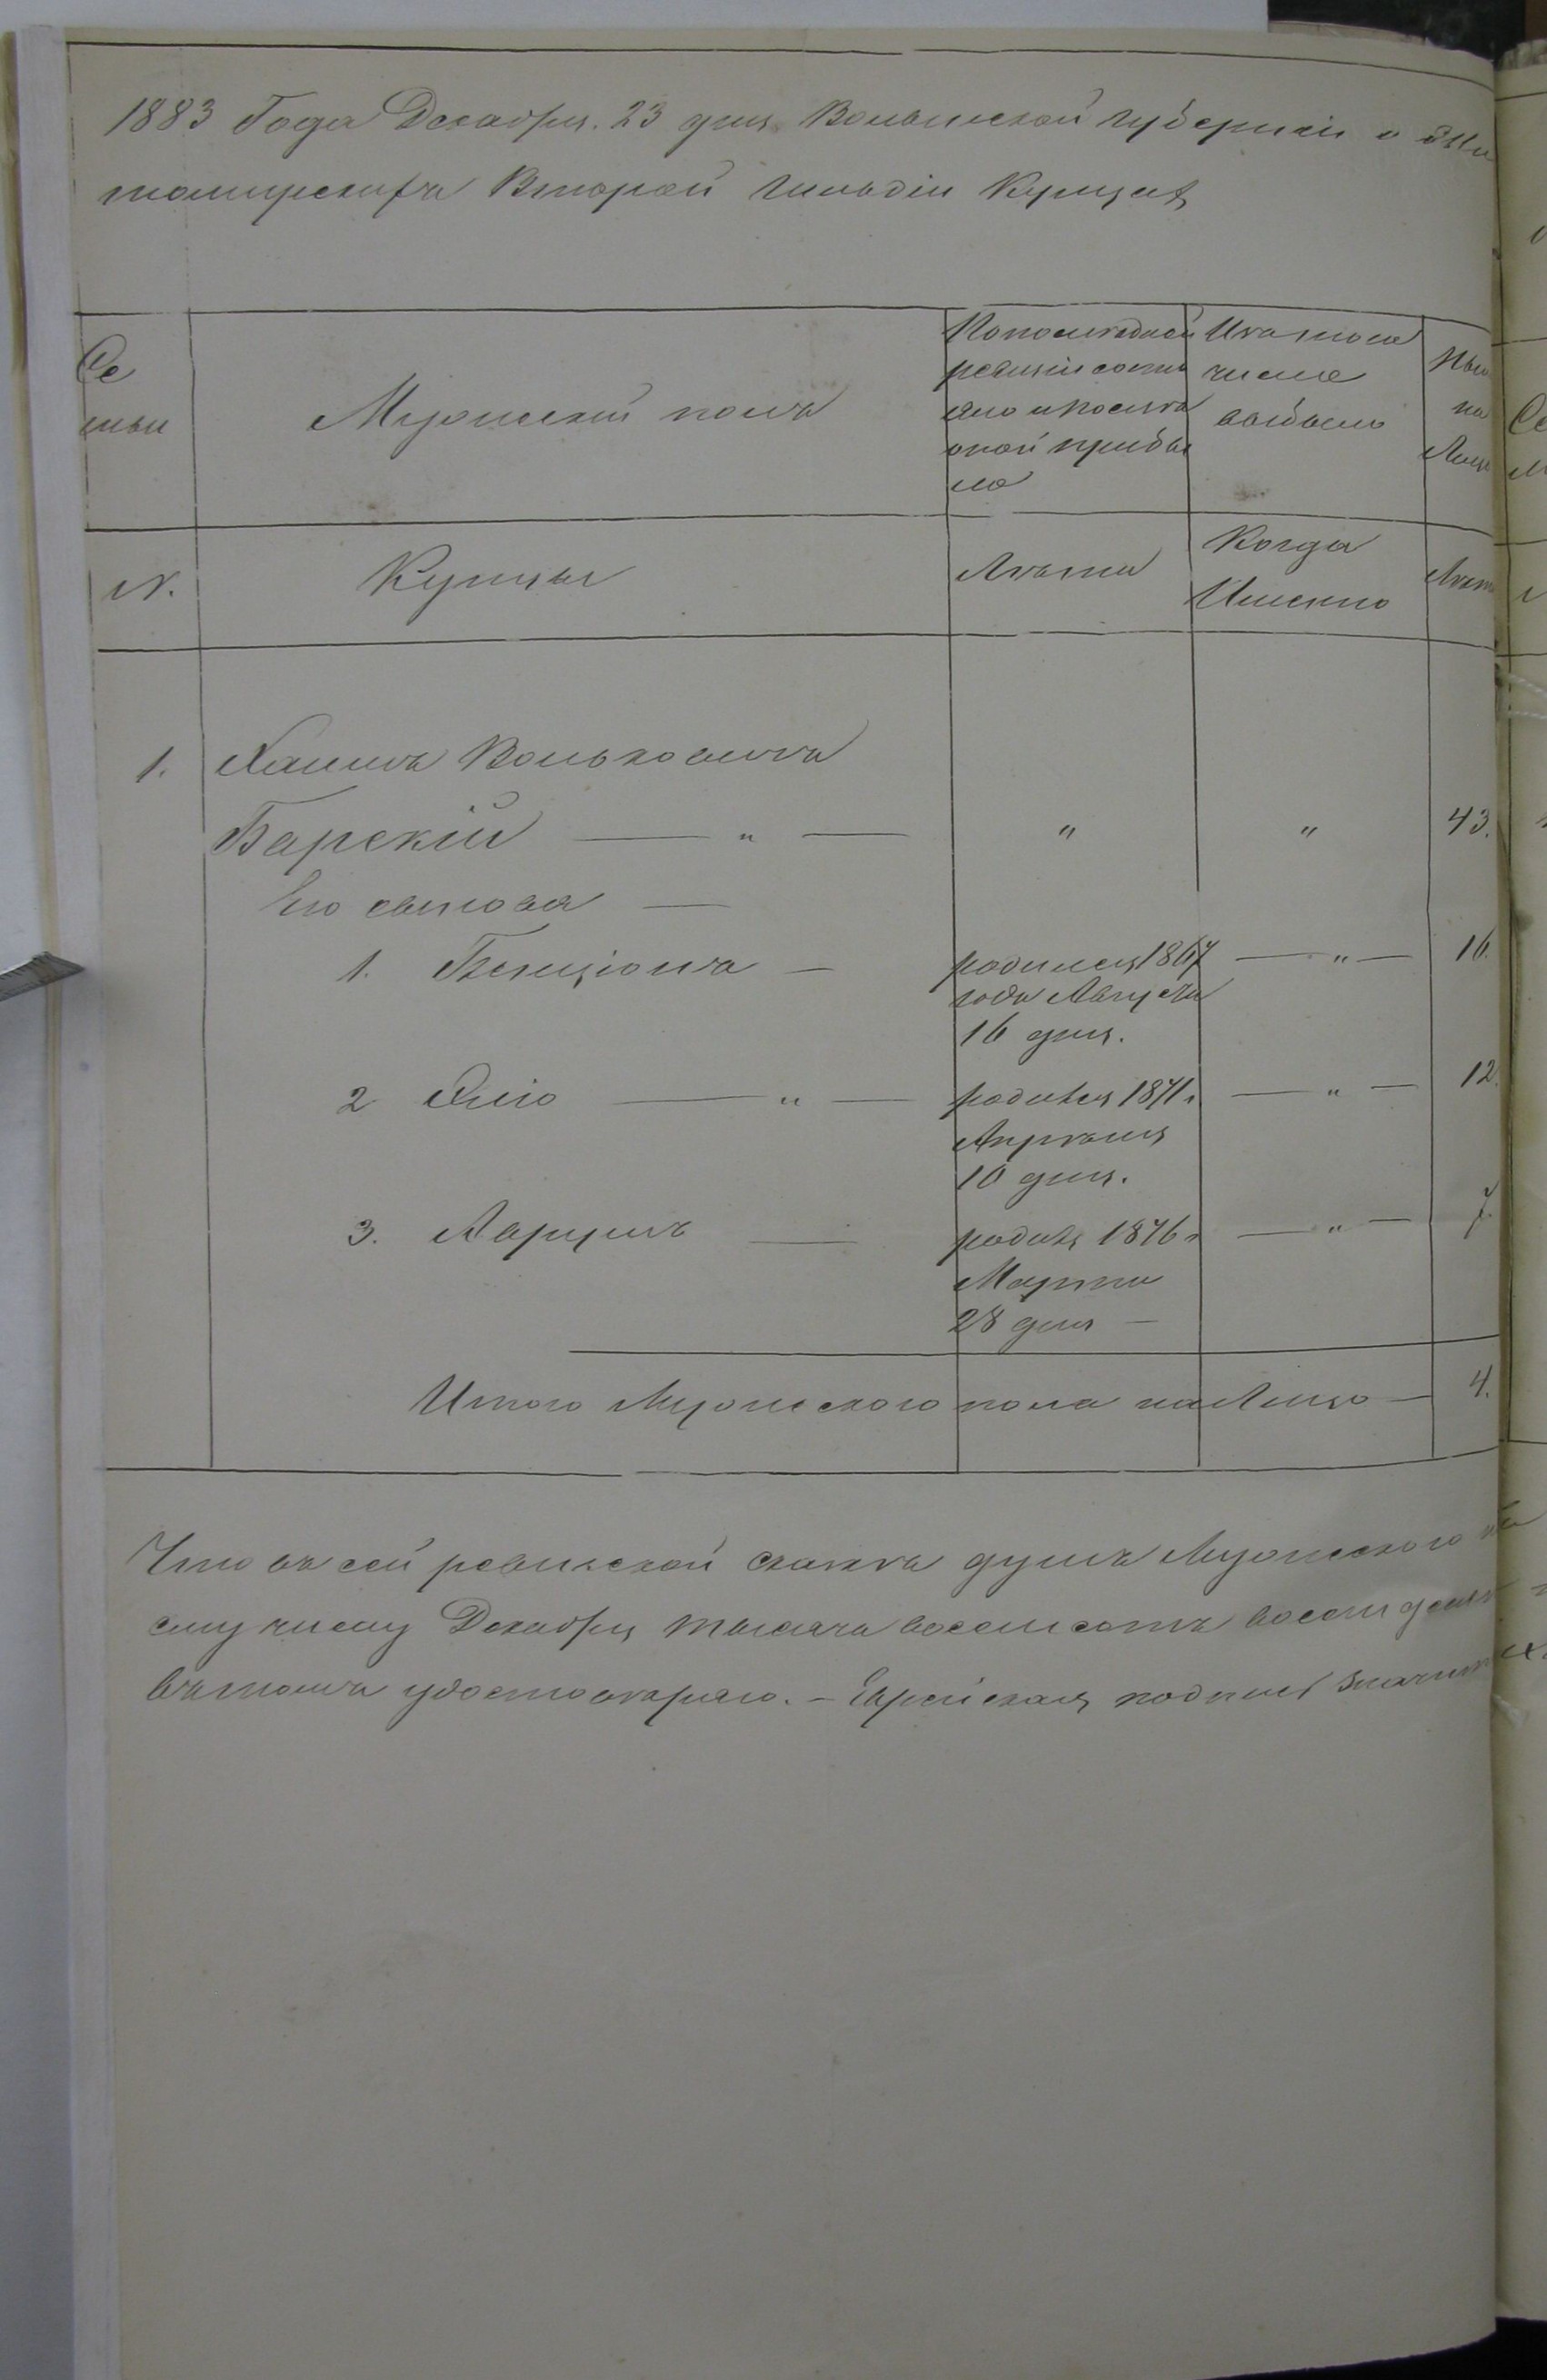 1883 Года Декабря. 23 дня Волынской Губерніи о Жи
томирскихъ Второй Гильдіи Купцахъ
Се
мьи
Мужескій полъ
По последней
ревизіи состо
яло и после
оной прибы
ло
Изъ того
числа
выбыло
Ны
на
Лиц
N.
Купцы
Лѣта
Когда
Именно
Лѣт
1. Хаимъ Волькович
Барскій — " — " " 43.
Его сыновья —
1. Бенціонъ — родился 1867 — " — 16.
года Августа
16 дня.
2 Элio — " — родился 1871 г. — " — 12.
Апрѣля
10 дня.
3. Ларумъ — родился 1876 г — " — 7.
Марта
28 дня —
Итого Мужеского пола на Лицо — 4.
Что въ сей ревизской сказкѣ душъ Мужеского
сему числу Декабря тысяча восемсотъ восемдеся
въ томъ удостовѣряю. — Еврейская подпись значит